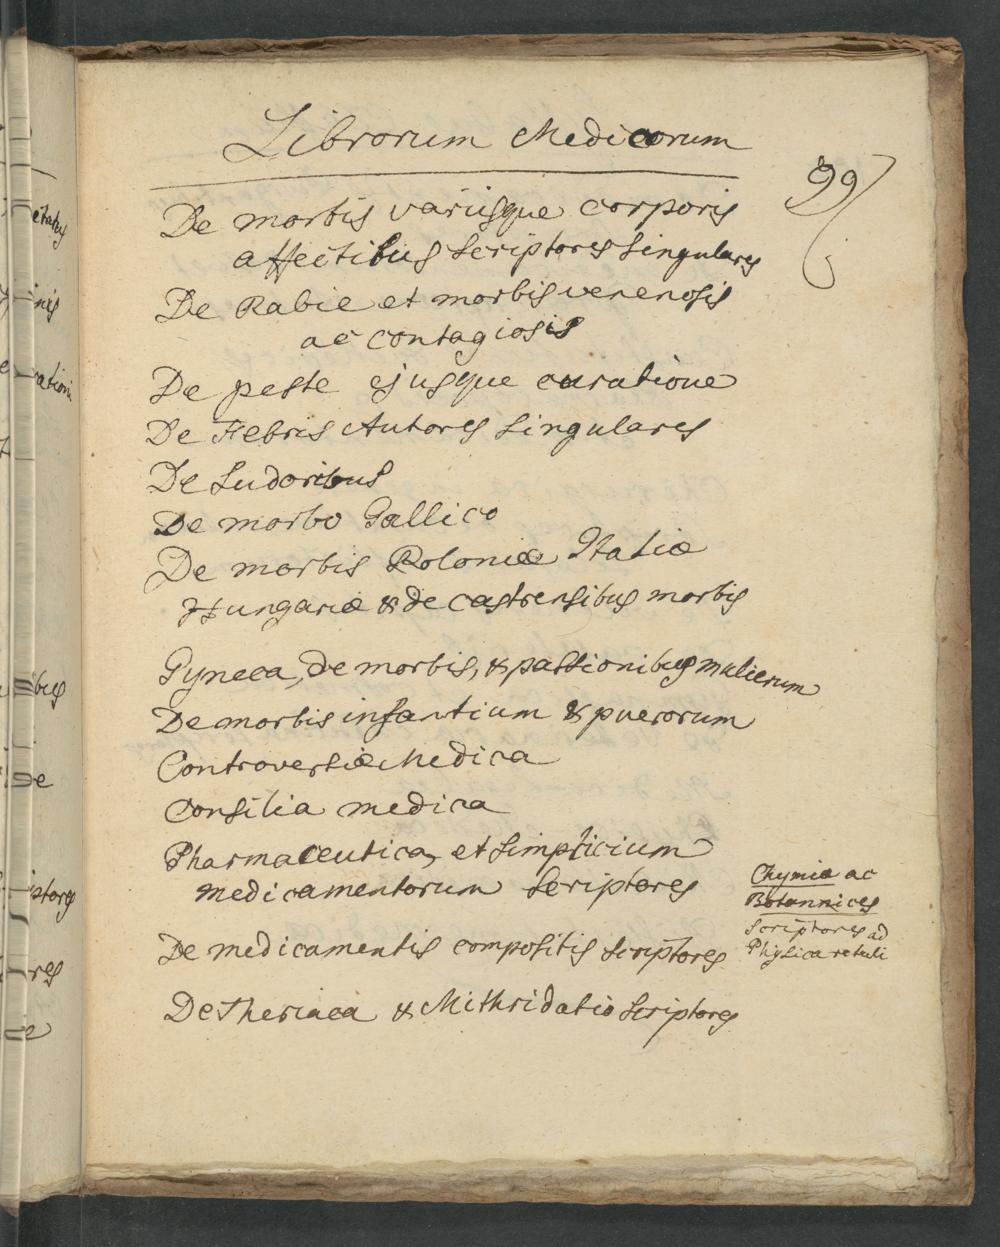 Librorum Medicorum
99
De morbis variisque corporis
affectibus Scriptores Singulares
De Rabie et morbis venenosis
ac contagiosis
De peste ejusque curatione
De Febris Autores Singulares
De Sudoribus
De morbo Gallico
De morbis Poloniæ Italiæ
Hungariæ & de castrensibus morbis
Gyneca, de morbis, & passionibus mulierum
De morbis infantium & puerorum
Controversiæ Medica
Consilia medica
Pharmaceutica, et Simplicium
medicamentorum Scriptores
Chymiæ ac
Botannices
Scriptores ad
Physica retuli
De medicamentis compositis Scriptores
De Theriaca & Mithridatio Scriptores